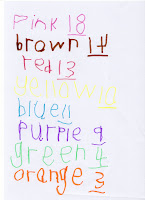 pink 18
brown 14
red 13
yellow 12
blue 11
purple 9
green 4
orange 3